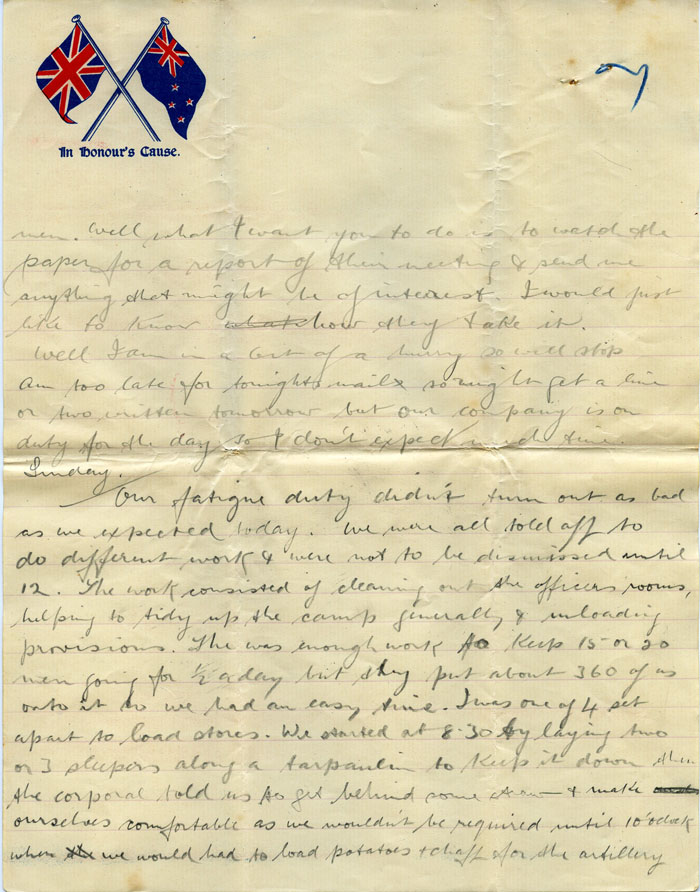 In Honour's Cause.
men. Well what I want you to do is to watch the
paper for a report of their meeting & send me
anything that might be of interest. I would just
like to know what how they take it.
Well I am in a bit of a hurry so will stop
Am too late for tonights mail so might get a line
or two written tomorrow but our company is on
duty for the day so I don't expect much time.
Sunday.
Our fatigue duty didn't turn out as bad
as we expected today. We were all told off to
do different work & were not to be dismissed until
12. The work consisted of cleaning out the officers rooms,
helping to tidy up the camp generally & unloading
provisions. The was enough work to keep 15 or 20
men going for 1/2 a day but they put about 360 of us
onto it so we had an easy time. I was one of 4 set
apart to load stores. We started at 8.30 by laying two
or 3 sleepers along a tarpaulin to keep it down then
the corporal told us to get behind some & make
ourselves comfortable as we wouldn't be required until 10 o'clock
when the we would had to load potatoes & chaff for the artillery